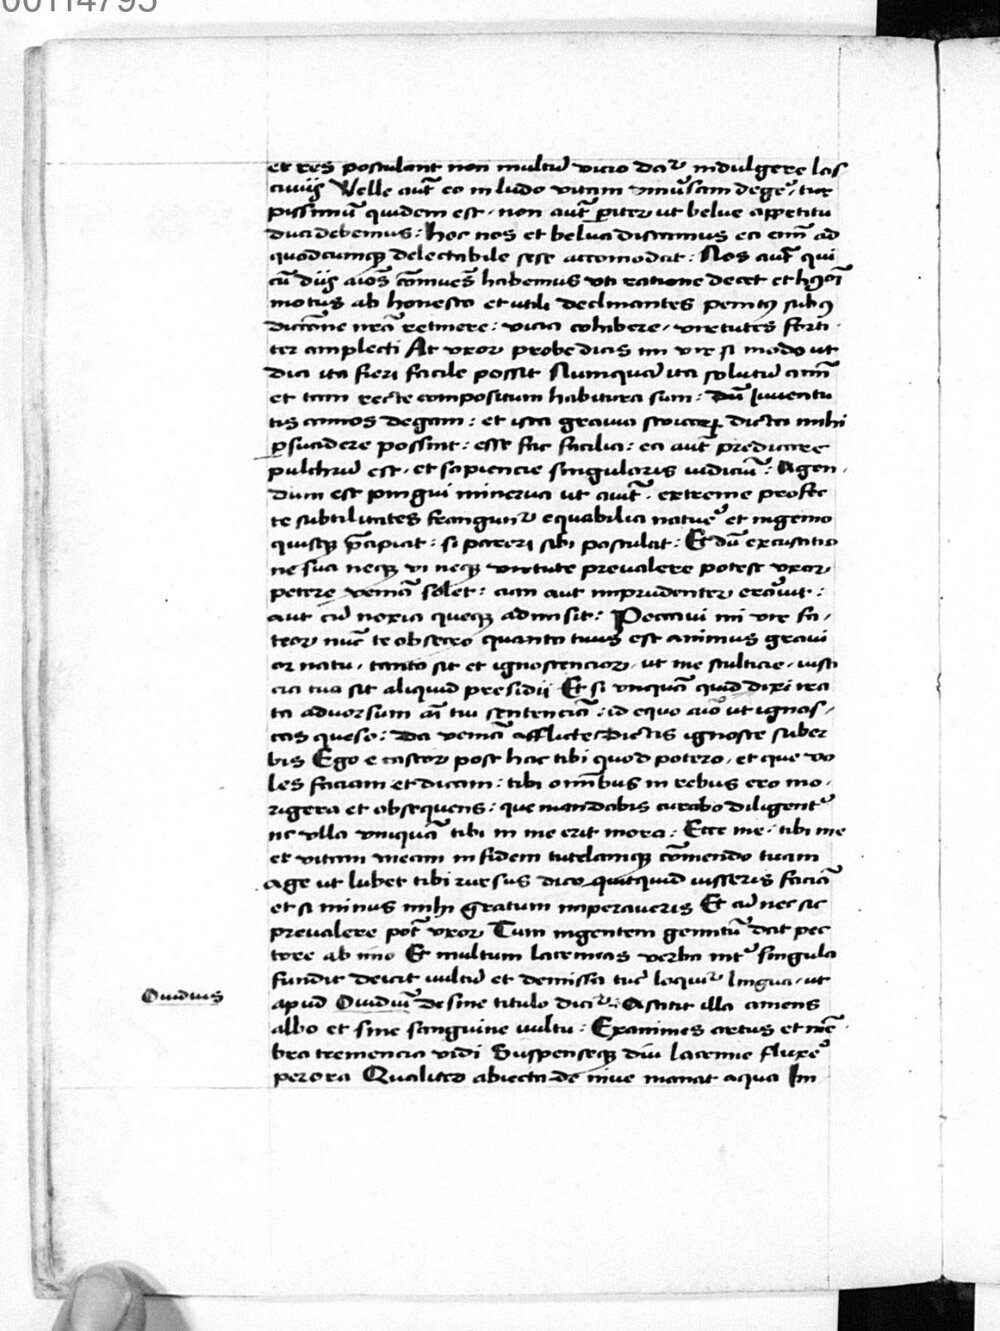 00114795
et res postulant non multũ vicio dar̃ indulgere las
civiis Velle aut̃ eo in ludo vitam vniũsam degẽ, tur
pissimũ quidem est, non aut̃ p̱iter ut belue appetitu
duci debemus: hoc nos et belua distamus ea em̃ ad
quodcumqꝫ delectabile sese accomodat: Nos aut̃ qui
cũ diis aĩos cõmues habemus vti ratione decet et
motus ab honesto et utili declinantes penitꝰ subꝰ
dictiõne nr̃a retinere: vicia cohibere, virtutes forti
ter amplecti At vxor probe dicis mi vir si modo ut
dici ita fieri facile possit Numquã ita solutũ aĩm
et tam recte compositum habitura sum: dũ Iuventu
tis annos degam: et ista gravia stoicoꝝ dicta mihi
ꝑsuadere possint: esse fac facilia: ea aut̃ predicare
pulchrũ est, et sapiencie singularis iudiciũ: Agen
dum est pingui minerva ut aiũt, extreme profec
te subtilitates frangunt̃ equabilia naturẽ et ingenio
quisqꝫ p̃cipiat: si pareri sibi postulat: Et dũ excusatio
ne sua neqꝫ vi neqꝫ virtute prevalere potest vxor
petere veniã solet: cum aut imprudenter erãvit:
aut cũ noxia queqꝫ admisit: Peccavi mi vir fa
teor nũc te obsecro quanto tuus est animus gravi
or natu, tanto sit et ignoscencior, ut me stulticie, iusti
cia tua sit aliquid presidii Et si vnquã quid dixi ira
ta adversum aĩ tui sentenciã: id equo aĩo ut ignos
cas queso: da veniã afflicte dictis ignosce super
bis Ego e castor post hac tibi quod potero, et que vo
les faciam et dicam: tibi omĩbus in rebus ero mo
rigera et obsequens: que mandabis curabo diligent̃
nc vlla vmquã tibi in me erit mora: Ecce me, tibi me
et vitam meam in fidem tutelamqꝫ cõmendo tuam
age ut lubet tibi rursus dico quitquid iusseris faciã
et si minus mihi gratum imperaveris Et cũ nec sic
prevalere pot̃ vxor Tum ingentem gemitũ dat pec
tore ab imo Et multum lacrimas verba int̃ singula
fundit deicit vultũ et demissa tũc loquir̃ lingua, ut
Ovidius
apud Ovidiũ de sine titulo dicir̃: Astitit illa amens
albo et sine sanguine vultu: Exanimes artus et mẽ
bra tremencia vidi Suspenseqꝫ diu lacrime fluxẽ
per ora Qualiter abiecta de nive manat aqua Im